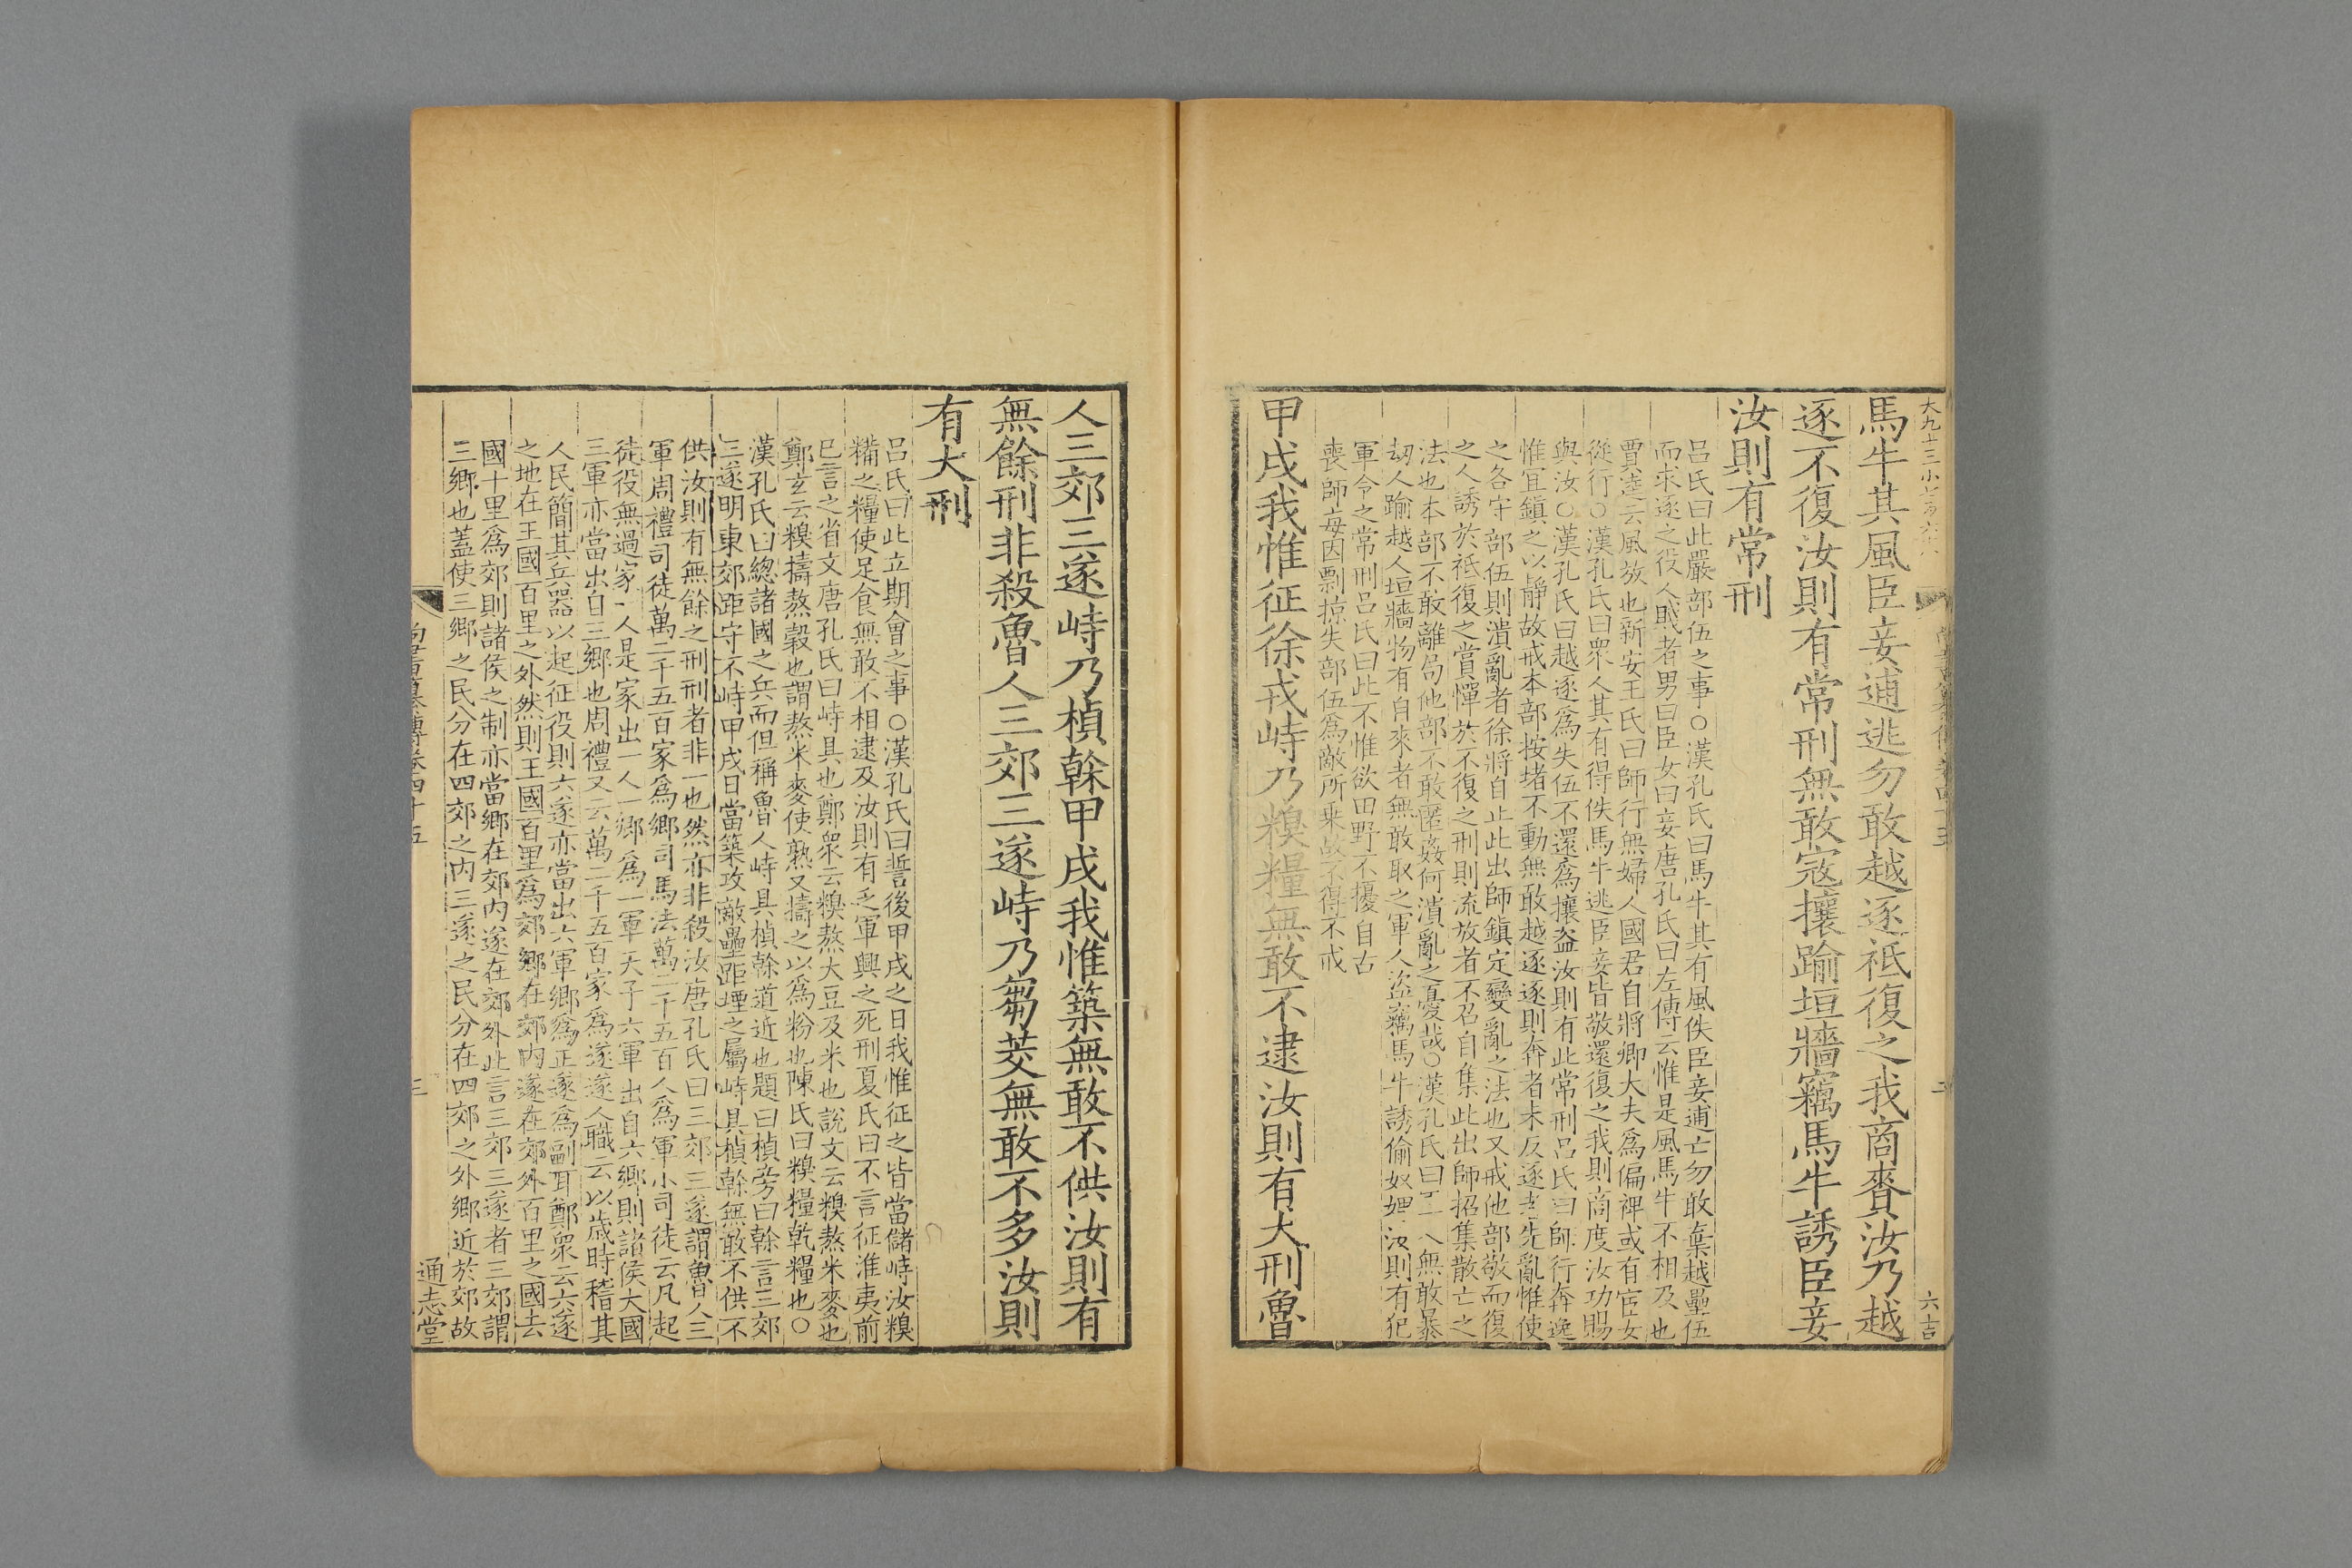 馬牛其風臣妾逋逃勿敢越逐祗復之我商賚汝乃越
逐不復汝則有常刑無敢寇攘踰垣牆竊馬牛誘臣妾
汝則有常刑
呂氏曰此嚴部伍之事○漢孔氏曰馬牛其有風佚臣妾逋亡勿敢棄越壘伍
而求逐之役人賤者男曰臣女曰妾唐孔氏曰左傳云惟是風馬牛不相及也
賈逵云風放也新安王氏曰師行無婦人國君自將卿大夫爲偏裨或有宦女
從行○漢孔氏曰衆人其有得佚馬牛逃臣妾皆敬還復之我則商度汝功賜
與汝○漢孔氏曰越逐爲失伍不還爲攘盜汝則有此常刑呂氏曰師行奔逸
惟宜鎮之以靜故戒本部按堵不動無敢越逐逐則奔者未反逐者先亂惟使
之各守部伍則潰亂者徐將自止此出師鎮定變亂之法也又戒他部敬而復
之人誘於祗復之賞憚於不復之刑則流放者不召自集此出師招集散亡之
法也本部不敢離局他部不敢匿姦何潰亂之憂哉○漢孔氏曰無敢暴
劫人踰越人垣牆物有自來者無敢取之軍人盜竊馬牛誘偷奴婢汝則有犯
軍令之常刑呂氏曰此不惟欲田野不擾自古
喪師每因剽掠失部伍爲敵所乘故不得不戒
甲戌我惟征徐戎峙乃糗糧無敢不逮汝則有大刑魯
人三郊三遂峙乃楨榦甲戌我惟築無敢不供汝則有
無餘刑非殺魯人三郊三遂峙乃芻茭無敢不多汝則
有大刑
呂氏曰此立期會之事○漢孔氏曰誓後甲戌之日我惟征之皆當儲峙汝糗
糒之糧使足食無敢不相逮及汝則有乏軍興之死刑夏氏曰不言征淮夷前
已言之省文唐孔氏曰峙具也鄭衆云糗熬大豆及米也說文云糗熬米麥也
鄭玄云糗擣熬穀也謂熬米麥使熟又擣之以爲粉也陳氏曰糗糧乾糧也○
漢孔氏曰總諸國之兵而但稱魯人峙具楨榦道近也題曰楨旁曰榦言三郊
三遂明東郊距守不峙甲戌日當築攻敵壘距堙之屬峙具楨榦無敢不供不
供汝則有無餘之刑刑者非一也然亦非殺汝唐孔氏曰三郊三遂謂魯人三
軍周禮司徒萬二千五百家爲鄉司馬法萬二千五百人爲軍小司徒云凡起
徒役無過家一人是家出一人一鄉爲一軍天子六軍出自六鄉則諸侯大國
三軍亦當出自三鄉也周禮又云萬二千五百家爲遂遂人職云以歲時稽其
人民簡其兵器以起征役則六遂亦當出六軍鄉爲正遂爲副耳鄭衆云六遂
之地在王國百里之外然則王國百里爲郊鄉在郊內遂在郊外百里之國去
國十里爲郊則諸侯之制亦當鄉在郊內遂在郊外此言三郊三遂者三郊謂
三鄉也蓋使三鄉之民分在四郊之內三遂之民分在四郊之外鄉近於郊故
通志堂